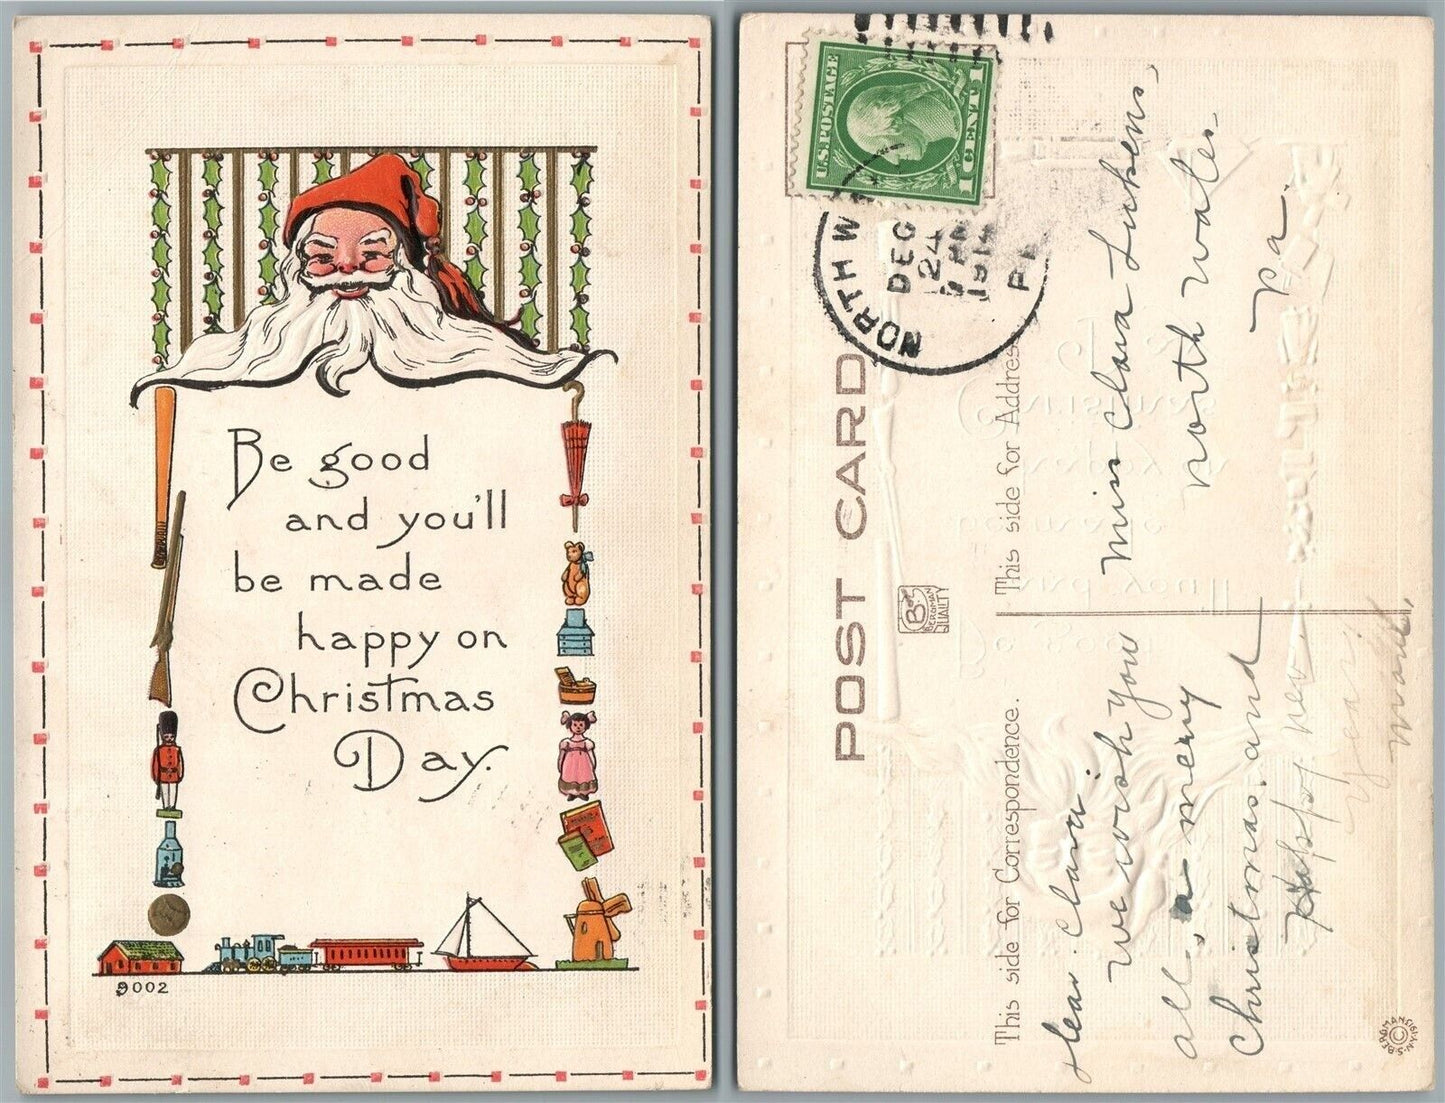 Be good
and you'll
be made
happy on
Christmas
Day.
9002
U.S. POSTAGE
1 CENT 1
NORTH W
DEC
24
PM
1914
PA
POST CARD
This side for Correspondence.
This side for Address
B
BERGMAN
QUALITY
Dear Clara
we wish you
all a merry
Christmas and
Happy new
year
Miss Clara Lukens,
North Wales.
Pa.
©S. BERGMAN 1913